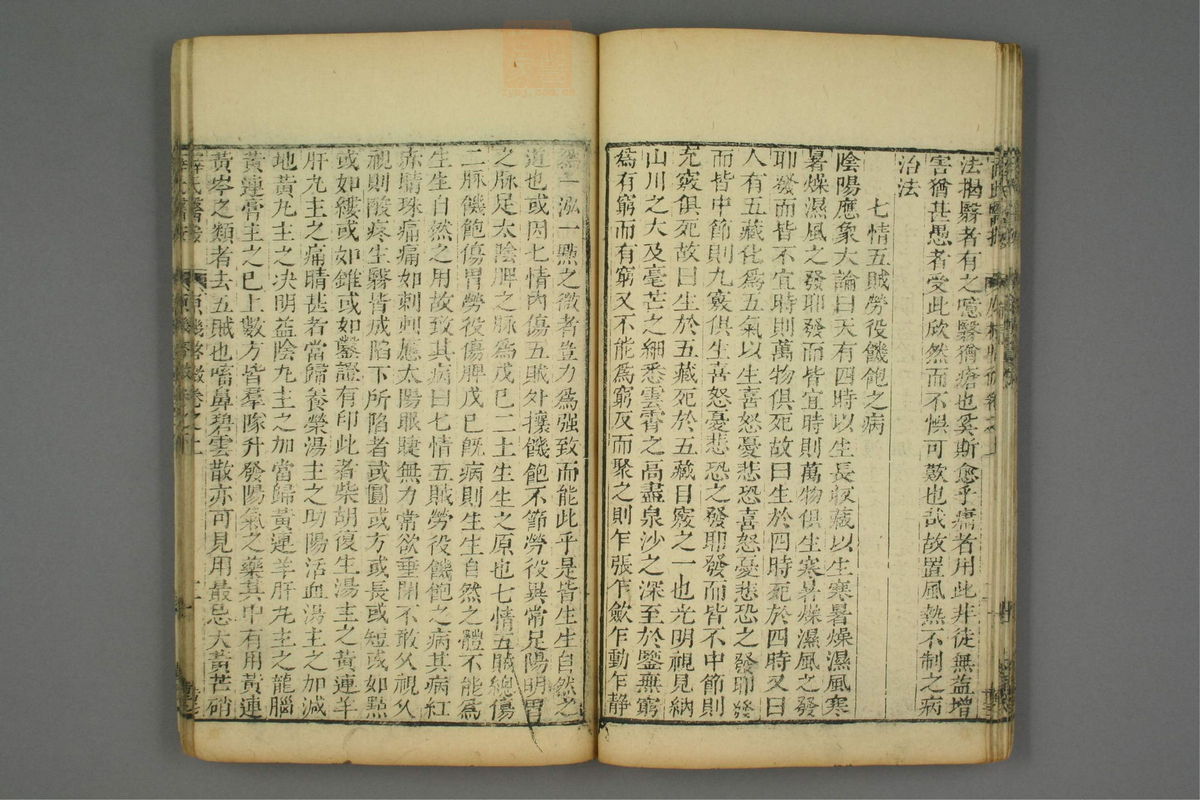 法揭翳者有之噫醫猶瘡也奚斯愈乎庸者用此非徒無益增
害猶甚愚者受此欣然而不惧可歎也哉故置風熱不制之病
治法
七情五賊勞役饑飽之病
陰陽應象大論曰天有四時以生長収藏以生寒暑燥濕風寒
暑燥濕風之發耶發而皆宜時則萬物俱生寒暑燥濕風之發
耶發而皆不宜時則萬物俱死故曰生於四時死於四時又曰
人有五藏化爲五氣以生喜怒憂悲恐喜怒憂悲恐之發耶發
而皆中節則九竅俱生喜怒憂悲恐之發耶發而皆不中節則
九竅俱死故曰生於五藏死於五藏目竅之一也光明視見納
山川之大及毫芒之細悉雲霄之高盡泉沙之深至於鑒無窮
爲有窮而有窮又不能爲窮反而聚之則乍張乍歛乍動乍静
爲一泓一點之微者豈力爲强致而能此乎是皆生生自然之
道也或因七情內傷五賊外攘饑飽不節勞役異常足陽明胃
之脉足太陰脾之脉爲戊己二土生生之原也七情五賊總傷
二脉饑飽傷胃勞役傷脾戊己旣病則生生自然之體不能爲
生生自然之用故致其病曰七情五賊勞役饑飽之病其病紅
赤睛珠痛痛如刺刺應太陽眼睫無力常欲垂閉不敢久視久
視則酸疼生翳皆成陷下所陷者或圓或方或長或短或如點
或如縷或如錐或如鑿證有印此者柴胡復生湯主之黃連羊
肝丸主之痛睛甚者當歸養榮湯主之助陽活血湯主之加減
地黃丸主之决明益陰丸主之加當歸黃連羊肝丸主之龍腦
黃連膏主之已上數方皆羣隊升發陽氣之藥其中有用黃連
黃芩之類者去五賊也㗜鼻碧雲散亦可見用最忌大黃芒硝
薛氏醫按
原機啓微卷之上